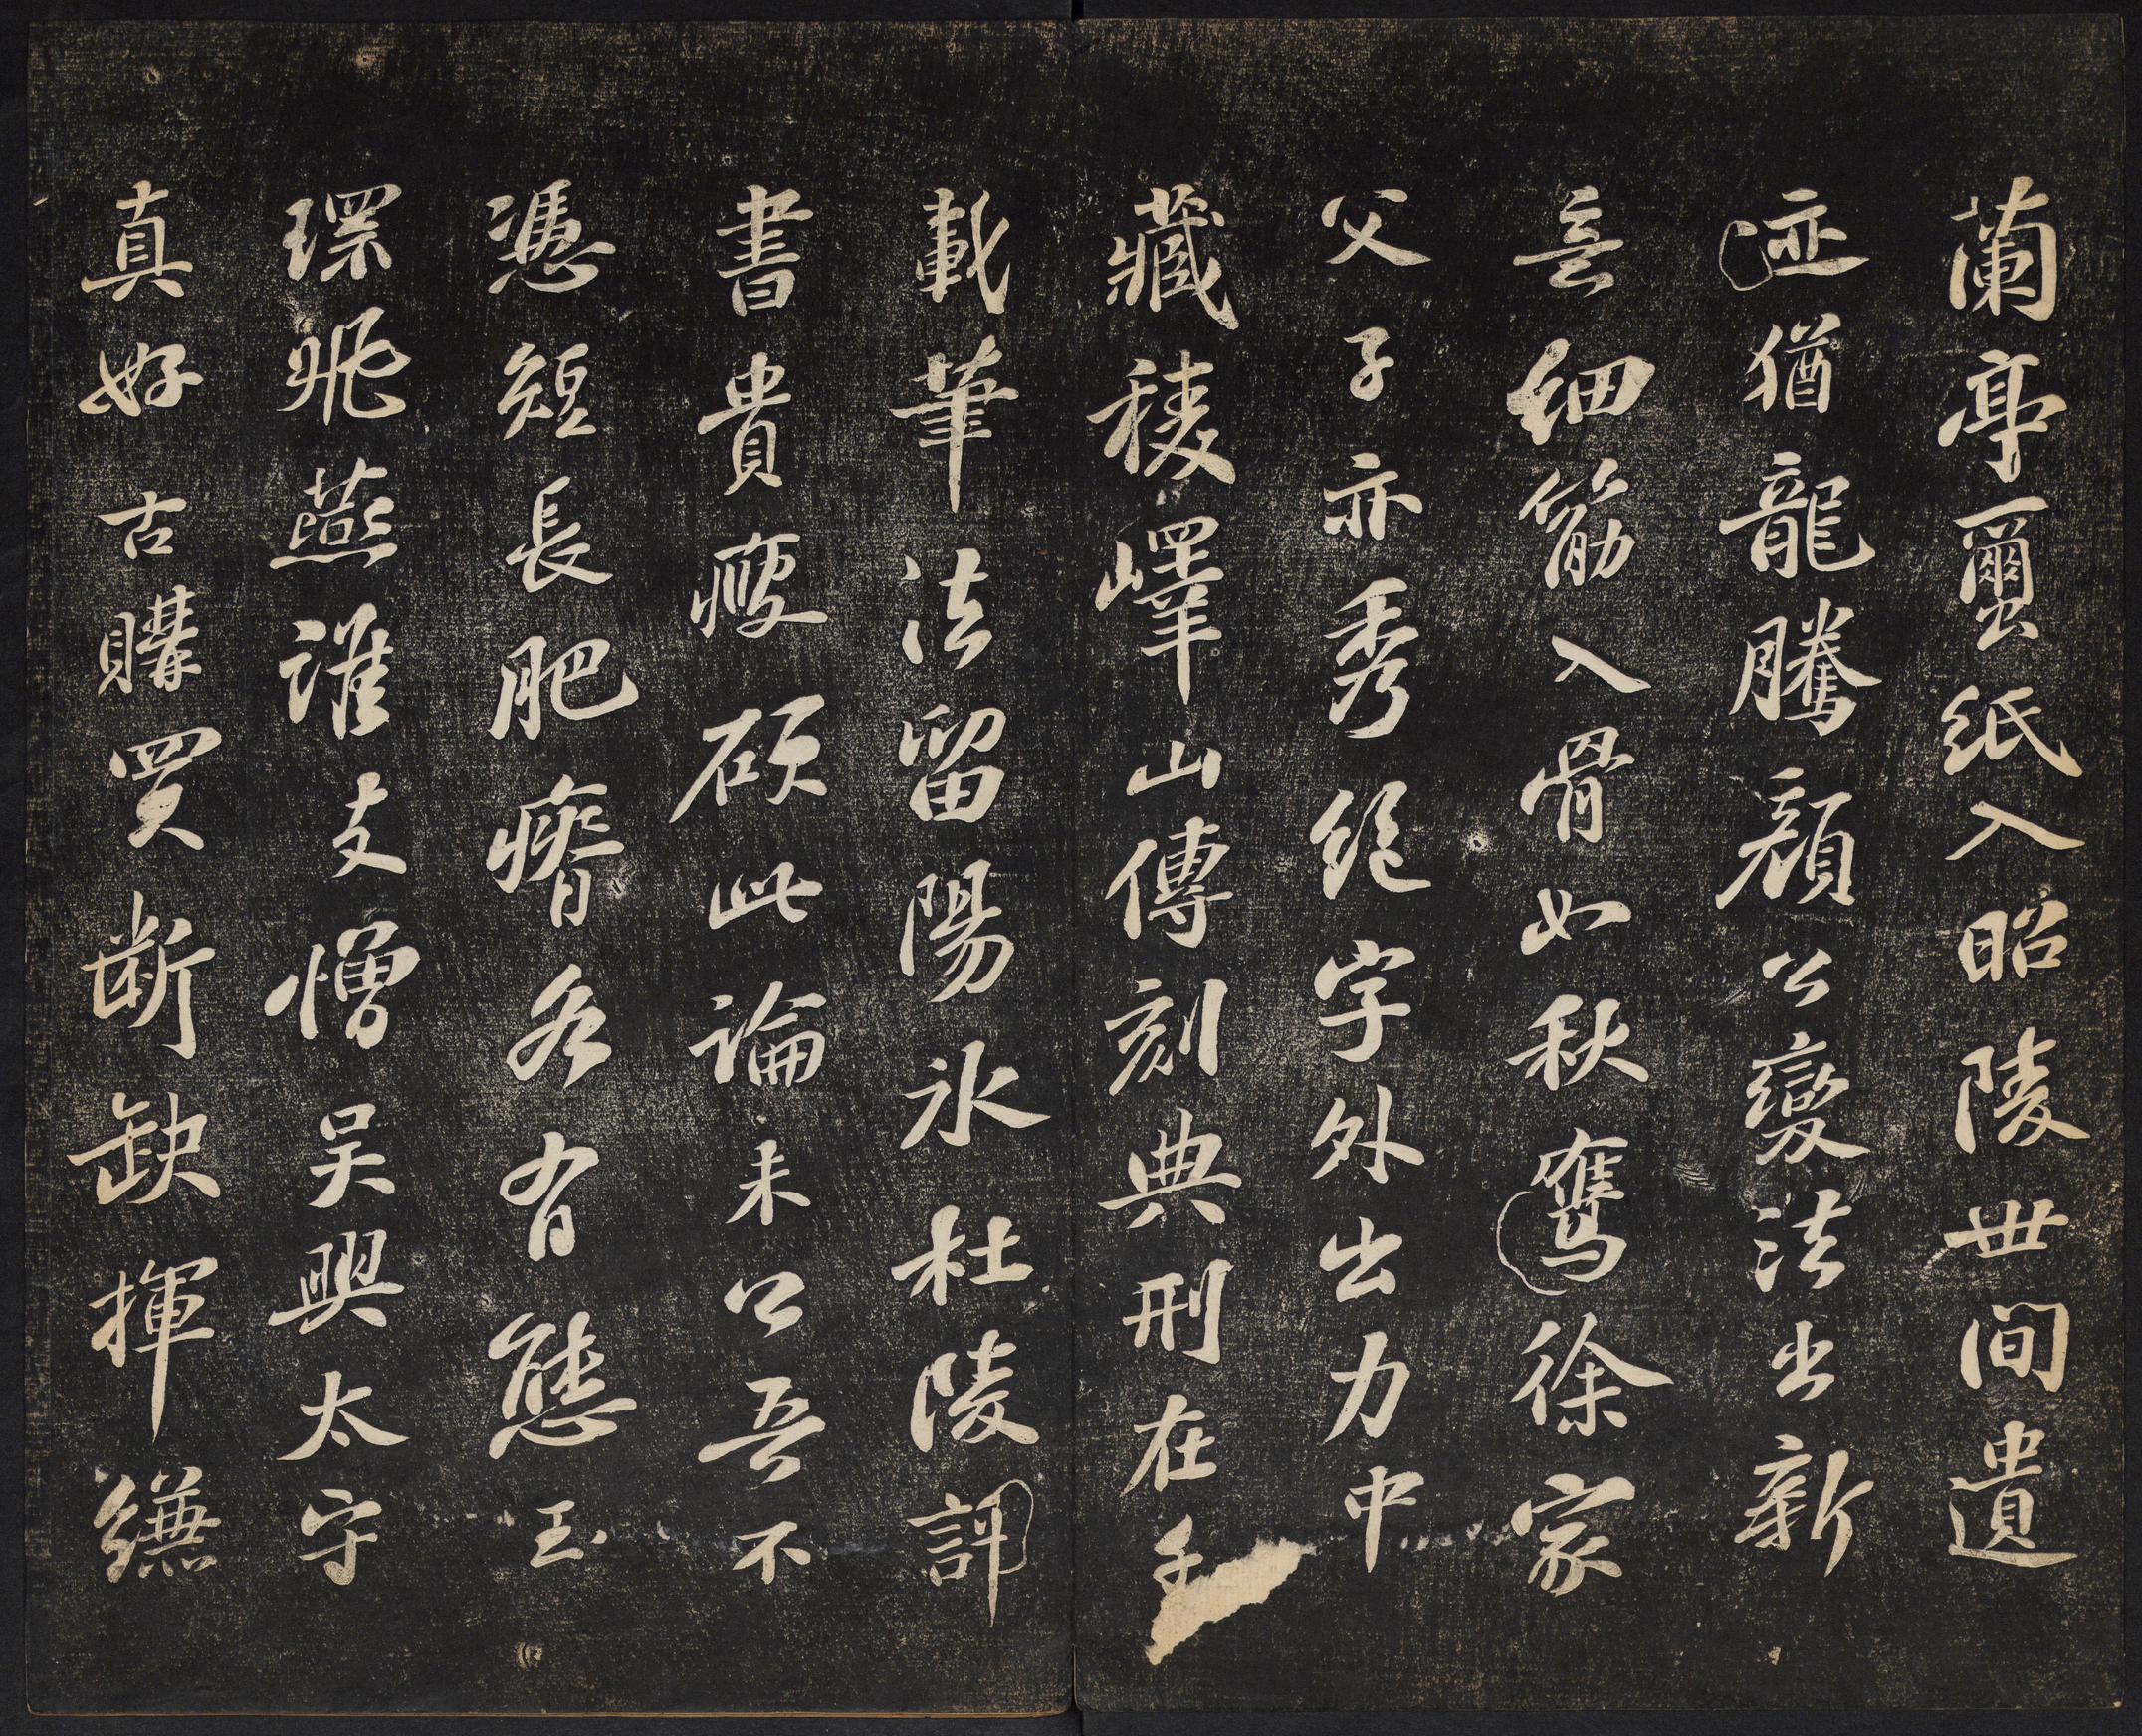 蘭亭蠒紙入昭陵世間遺
迹猶龍騰顏公變法出新
意細筋入骨如秋鷹徐家
父子亦秀絕字外出力中
藏稜嶧山傳刻典刑在千
載筆法留陽冰杜陵評
書貴瘦硬此論未公吾不
憑短長肥瘠各有態玉
環飛燕誰敢憎吳興太守
真好古購買斷缺揮縑